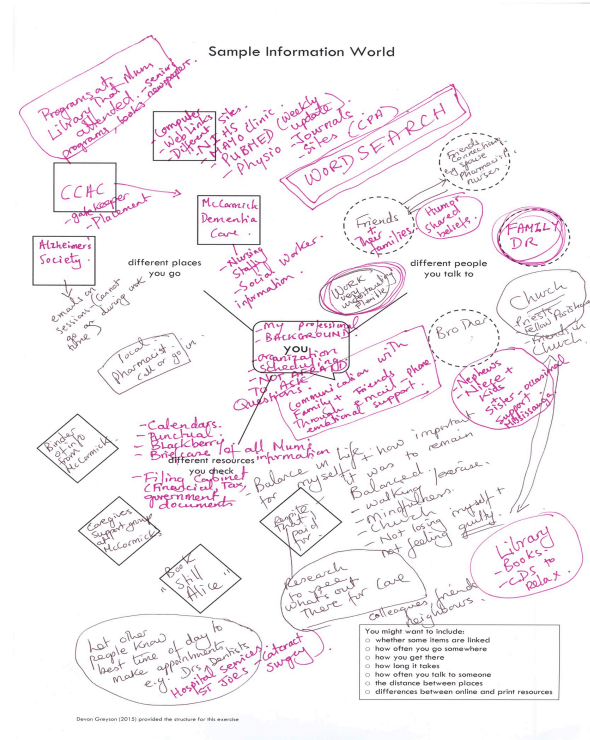 Sample Information World
Programs at
Library that Mum
attended. - seniors
programs, books, newspapers.
- Computer
- Web Links
- Different sites.
- NIHS
- MAYO Clinic.
- PUBMED (weekly
update)
- Physio
- Journals
- Sites (CPA)
WORD SEARCH!
Friends
Connections
eg. spouse
Pharmacist
nurses
CCAC
- gatekeeper
- Placement
McCormick
Dementia
Care.
- Nursing
Staff
- Social Worker.
information.
Friends
+
their
families.
Humor
shared
beliefs.
FAMILY
DR
Alzheimers
Society.
different places
you go
different people
you talk to
emails on
sessions (Cannot
go as during work
time)
WORK
very
understanding
flexible
Church
Priests
Fellow Parishioners
- Friends in
Church
local
Pharmacist.
call or go in.
- My professional
BACKGROUND
you
- organization
scheduling
- NOT AFRAID
TO ASK
Questions.
Brother
Communication with
Family + Friends - phone
Through e-mail -
emotional support.
- Nephews
- Niece +
Kids
sister occasional
support
Mississauga
- Calendars.
- Punctual
- Blackberry
- Briefcase of all Mum's
information
different resources
you check
- Filing Cabinet
(Financial, Tax,
government
documents
Binder
of info
from
McCormick
Balance in Life + how important
for myself it was to remain
Balanced / exercise.
- walking
- Mindfulness.
- Church
- Not losing myself +
not feeling guilty.
Caregivers
support group
McCormicks
Respite
paid
for
Book
"Still
Alice"
Library
- Books.
- CDS to
Relax.
Research
to see
what's out
There for Care
colleagues, friends
neighbours.
Let other
people Know
best time of day to
make appointments.
e.g. Drs, Dentists
Hospital Services
ST JOES - (Cataract
surgery)
You might want to include:
○ whether some items are linked
○ how often you go somewhere
○ how you get there
○ how long it takes
○ how often you talk to someone
○ the distance between places
○ differences between online and print resources
Devon Greyson (2015) provided the structure for this exercise